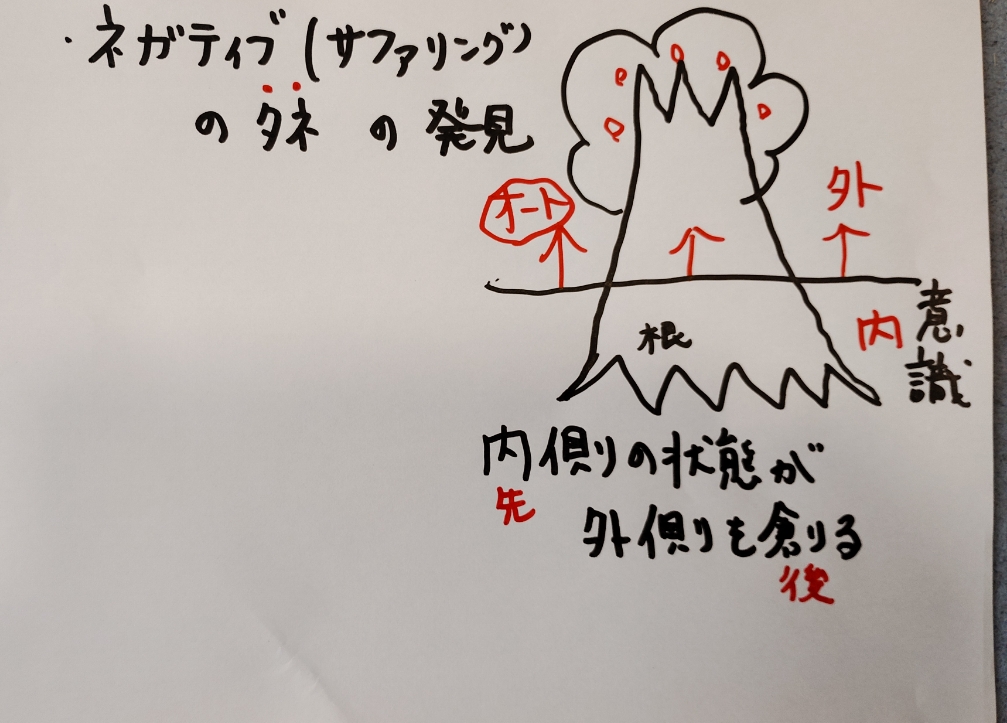 ・ネガティブ(サファリング)
のタネの発見
オート
外
根
内
意識
内側の状態が
先
外側を創る
後